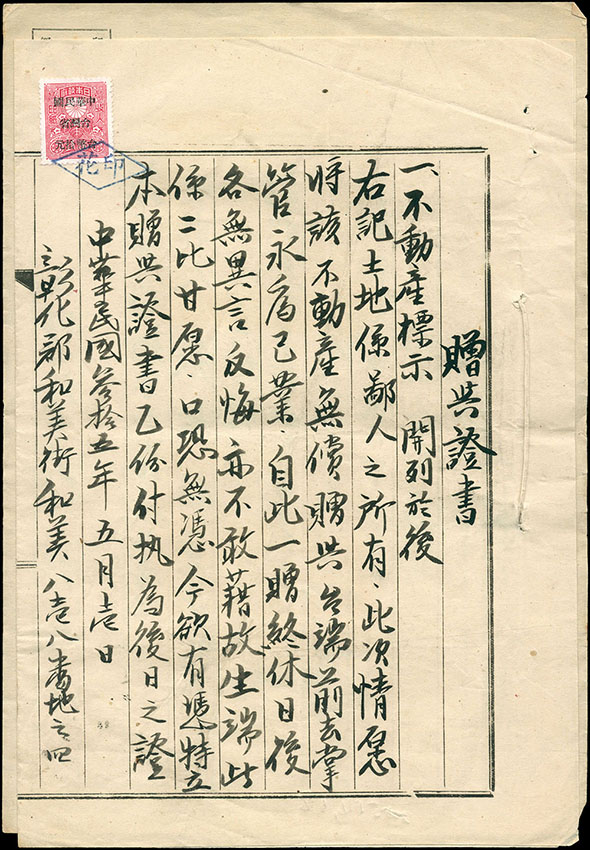 贈與證書
一、不動產標示 開列於後
右記土地係鄙人之所有、此次情愿
將該不動產無償贈與台端前去掌
管永為己業、自此一贈終休日後
各無異言反悔亦不敢藉故生端此
係二比甘愿口恐無憑今欲有憑特立
本贈與證書乙份付执為後日之證
中華民國參拾五年五月壱日
彰化郡和美街和美八壱八番地之四
中華民國
台灣省
印花